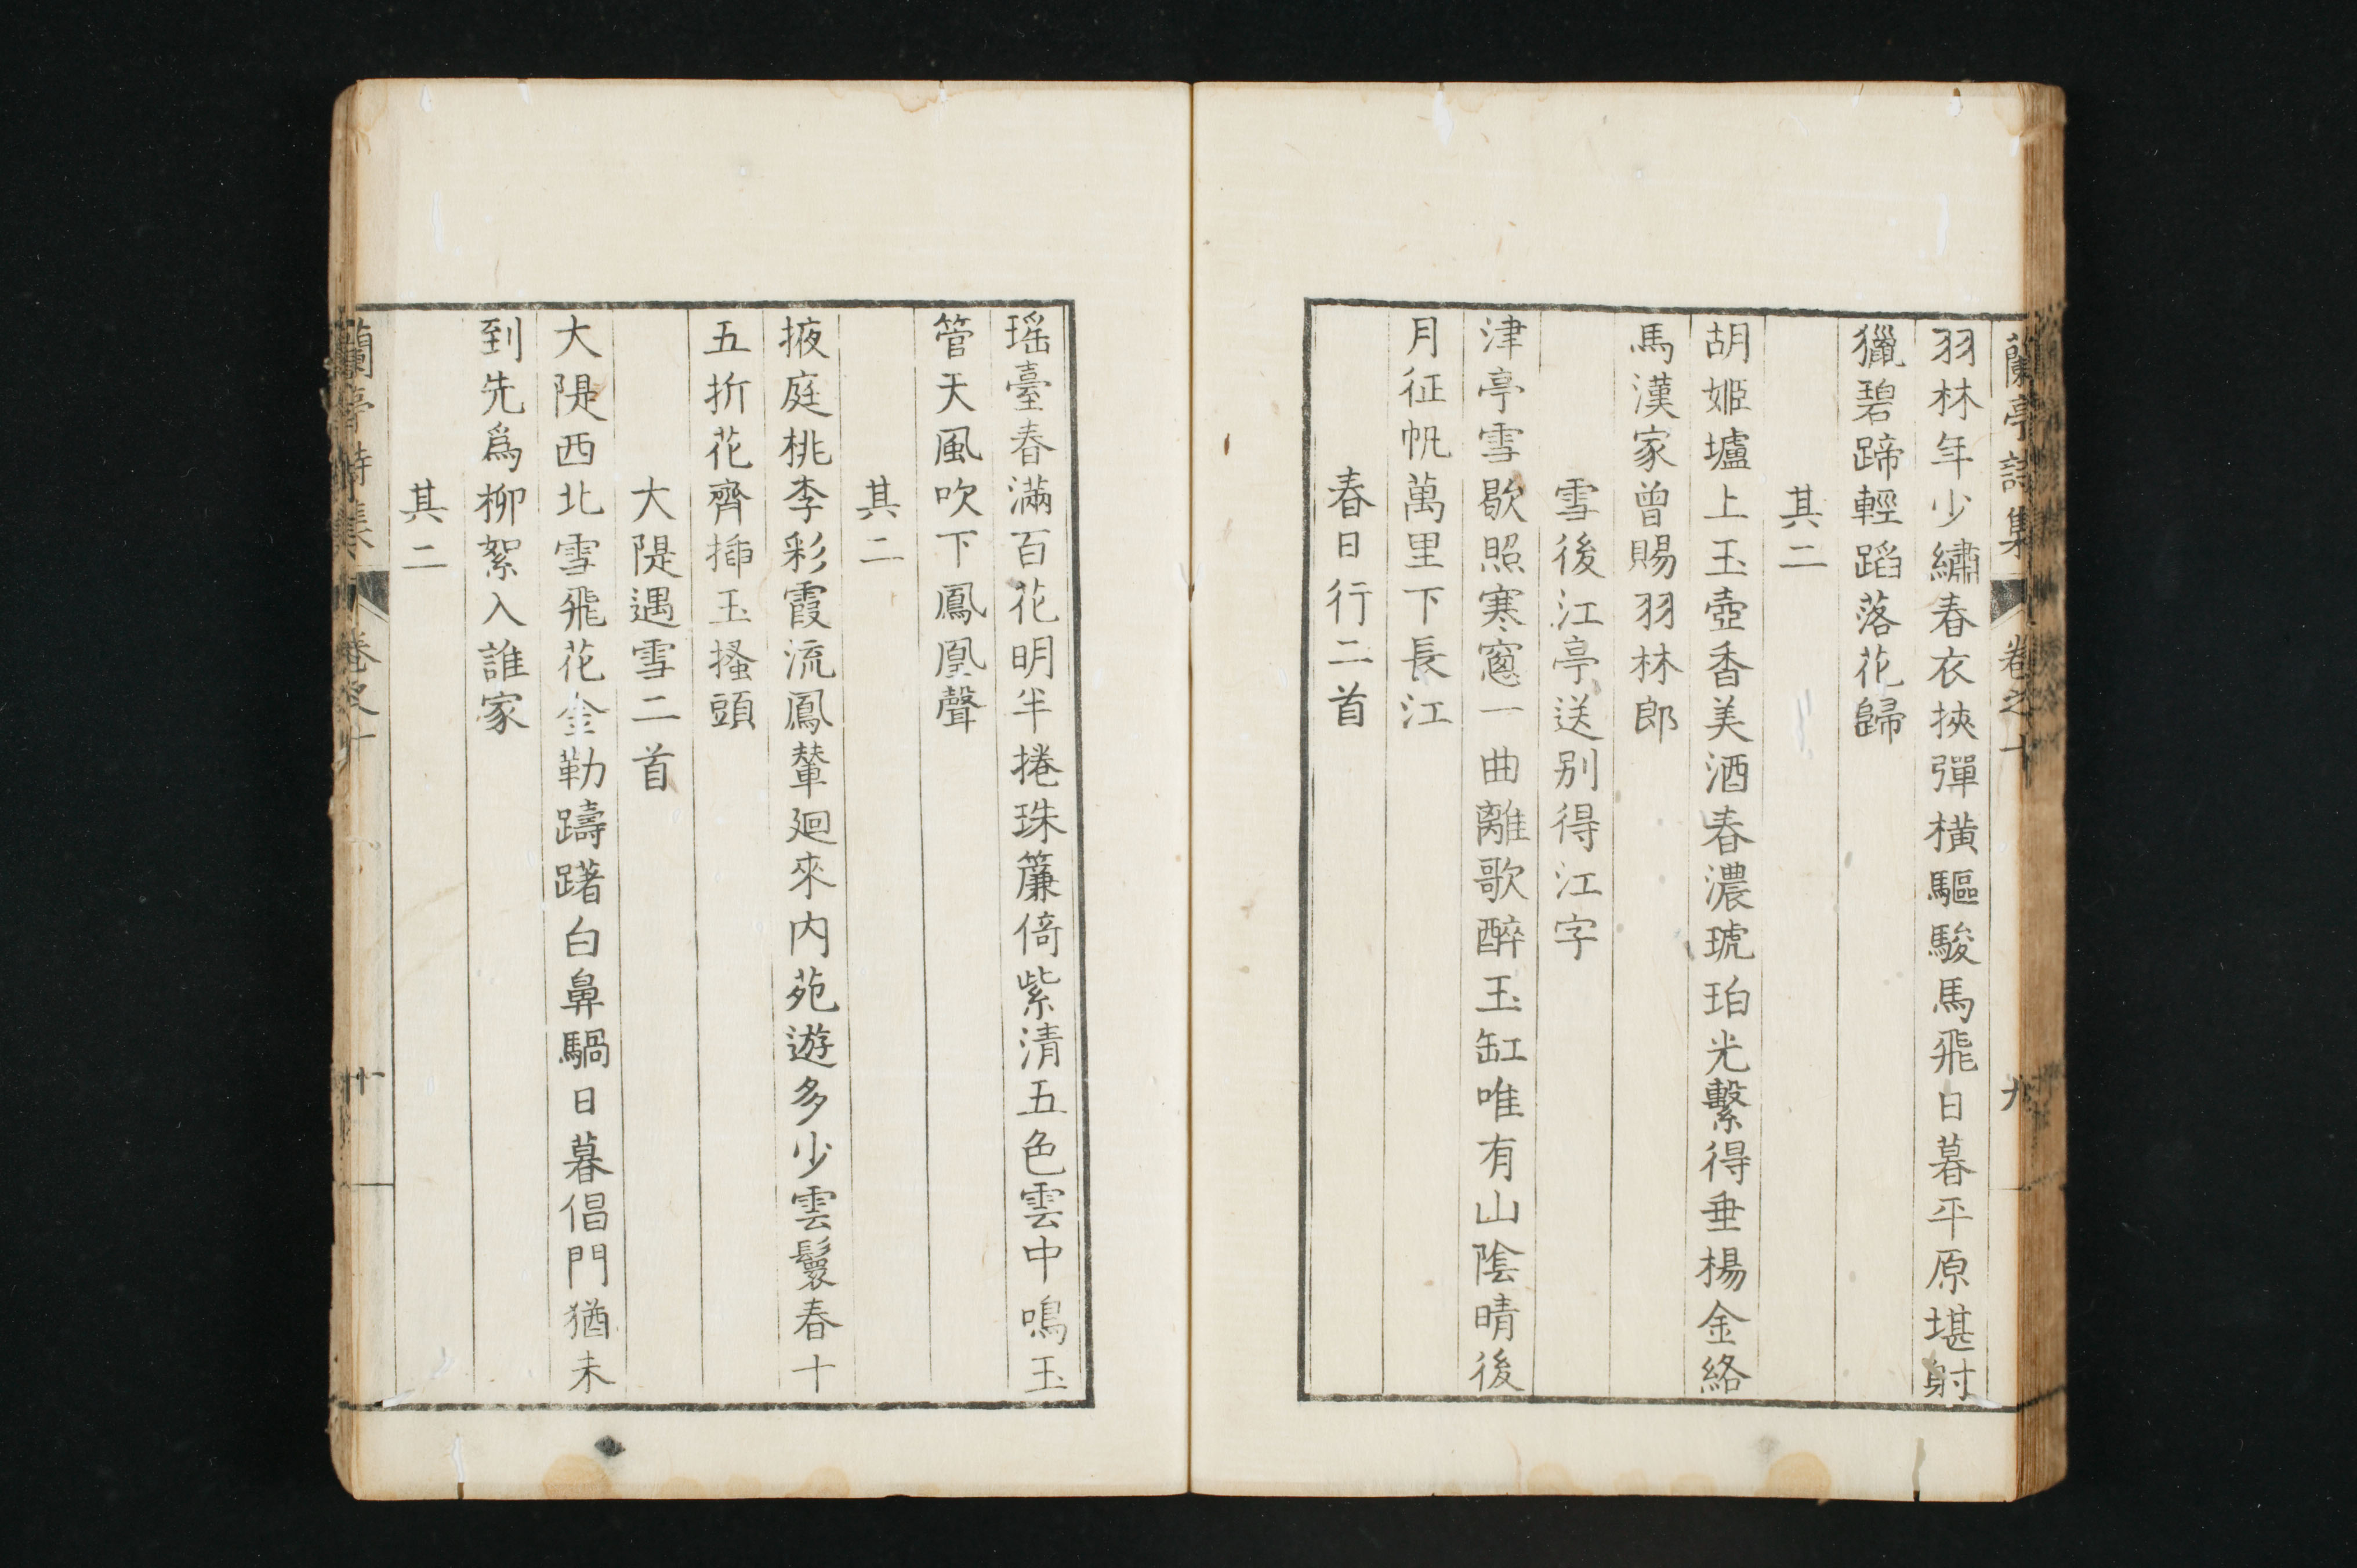 蘭亭詩集 卷之十 九
羽林年少繡春衣挾彈橫驅駿馬飛日暮平原堪射
獵碧蹄輕蹈落花歸
其二
胡姬壚上玉壺香美酒春濃琥珀光繫得垂楊金絡
馬漢家曾賜羽林郎
雪後江亭送别得江字
津亭雪歇照寒窻一曲離歌醉玉缸唯有山陰晴後
月征帆萬里下長江
春日行二首
瑶臺春滿百花明半捲珠簾倚紫清五色雲中鳴玉
管天風吹下鳳凰聲
其二
掖庭桃李彩霞流鳳輦廻來内苑遊多少雲鬟春十
五折花齊揷玉搔頭
大隄遇雪二首
大隄西北雪飛花金勒躊躇白鼻騧日暮倡門猶未
到先爲柳絮入誰家
其二
蘭亭詩集 卷之十 十